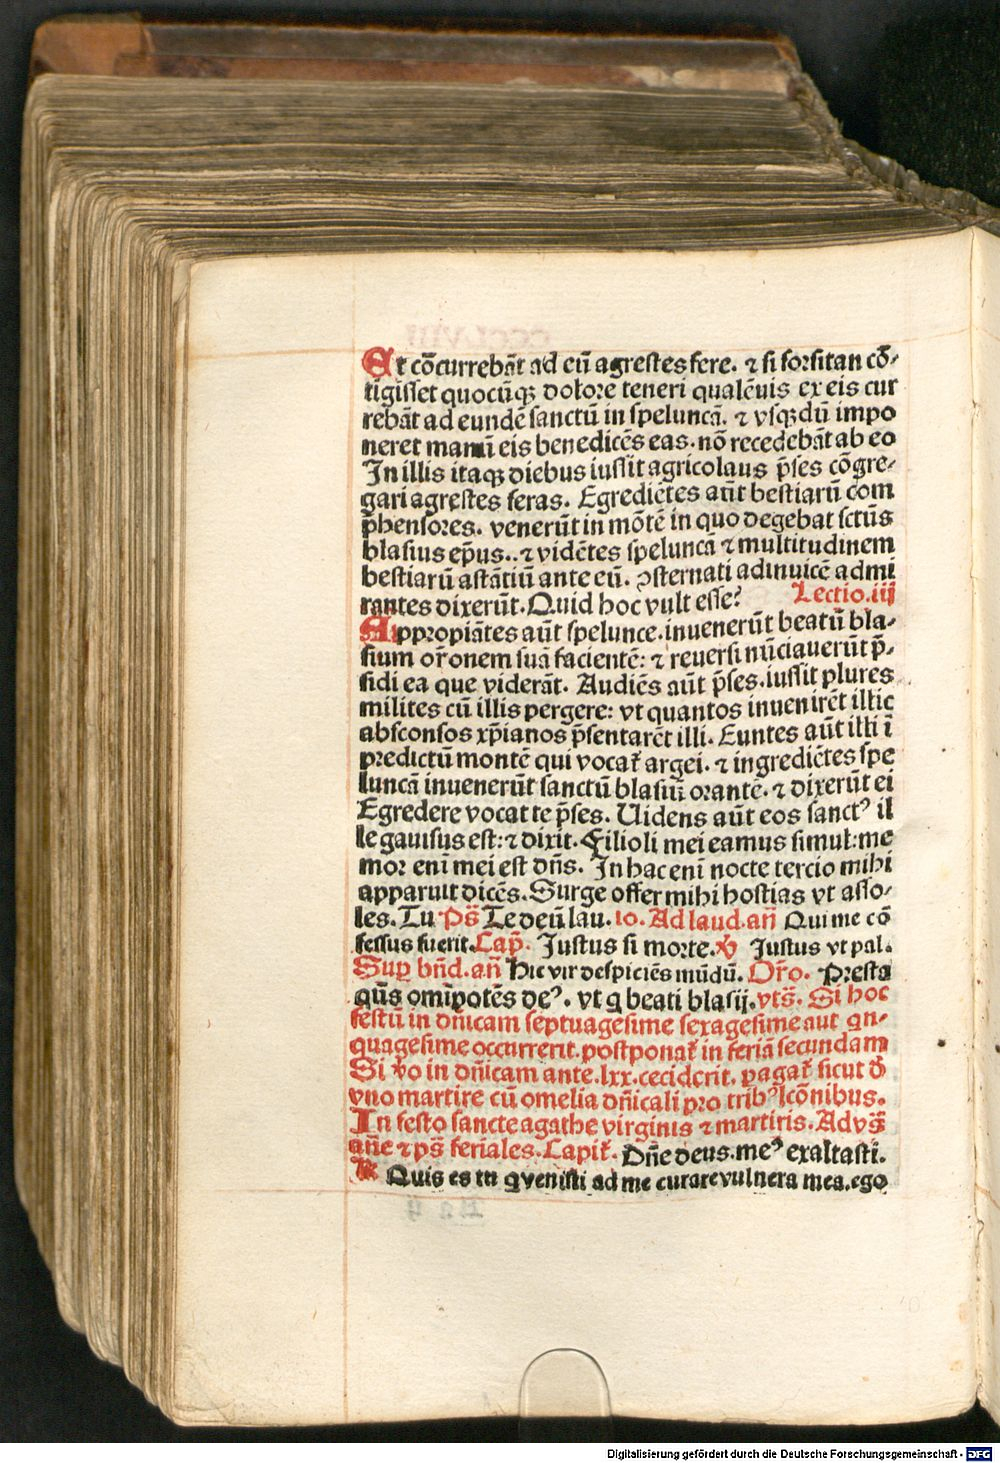 Et cōcurrebāt ad eū agrestes fere. ⁊ si forsitan cō-
tigisset quocūqꝫ dolore teneri qualēuis ex eis cur
rebāt ad eundē sanctū in speluncā. ⁊ vsqꝫdū impo
neret manū eis benedicēs eas. nō recedebāt ab eo
In illis itaqꝫ diebus iussit agricolaus p̄ses cōgre-
gari agrestes feras. Egrediētes aūt bestiarū com
p̄hensores. venerūt in mōtē in quo degebat sctūs
blasius ep̄us.. ⁊ vidētes speluncā ⁊ multitudinem
bestiarū astātiū ante eū. ꝯsternati adinuicē admi
rantes dixerūt. Quid hoc vult esse? Lectio.iij
Appropiātes aūt spelunce. inuenerūt beatū bla-
sium or̄onem suā facientē: ⁊ reuersi nūciauerūt p̄-
sidi ea que viderāt. Audiēs aūt p̄ses. iussit plures
milites cū illis pergere: vt quantos inuenirēt illic
absconsos xp̄ianos p̄sentarēt illi. Euntes aūt illi ī
predictū montē qui vocat̄ argei. ⁊ ingrediētes spe
luncā inuenerūt sanctū blasiū orantē. ⁊ dixerūt ei
Egredere vocat te p̄ses. Uidens aūt eos sanctꝰ il
le gauisus est: ⁊ dixit. Filioli mei eamus simul: me
mor enī mei est dn̄s. In hac enī nocte tercio mihi
apparuit dicēs. Surge offer mihi hostias vt asso-
les. Tu Ps̄ Te deū lau. io. Ad laud. an̄ Qui me cō
fessus fuerit. Cap̄. Justus si morte. ℣ Justus vt pal.
Suꝑ bn̄d. an̄ Hic vir despiciēs mūdū. Or̄o. Presta
qūs omīpotēs deꝰ. vt q beati blasij. vts̄. Si hoc
festū in dn̄icam septuagesime sexagesime aut qn-
quagesime occurrerit. postponat̄ in feriā secundam
Si v̄o in dn̄icam ante. lxx. ceciderit. pagat̄ sicut d̄
vno martire cū omelia dn̄icali pro tribꝰ lcōnibus.
In festo sancte agathe virginis ⁊ martiris. Ad vs̄
an̄e ⁊ ps̄ feriales. Capit̄. Dn̄e deus. meꝰ exaltasti.
℟ Quis es tu q venisti ad me curare vulnera mea. ego
Digitalisierung gefördert durch die Deutsche Forschungsgemeinschaft - DFG